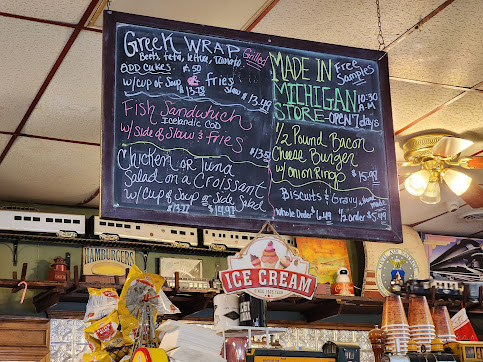 Greek WRAP Grilled
Beets, feta, lettuce, Tomato
ODD CUKES
w/cup of Soup & fries
Slaw $13.49
Fish Sandwhich
Icelandic COD
w/side of Slaw & FRIES
Chicken or Tuna
Salad on a Croissant
w/Cup of Soup or Side Salad
$14.97
MADE IN
MICHIGAN
STORE
Free
Samples
10:30
A.M
OPEN 7 days
1/2 Pound Bacon
Cheese Burger
w/onion Rings
$15.97
Biscuits & Gravy
Whole Order $6.49 1/2 order $5.49
HAMBURGERS
ICE CREAM